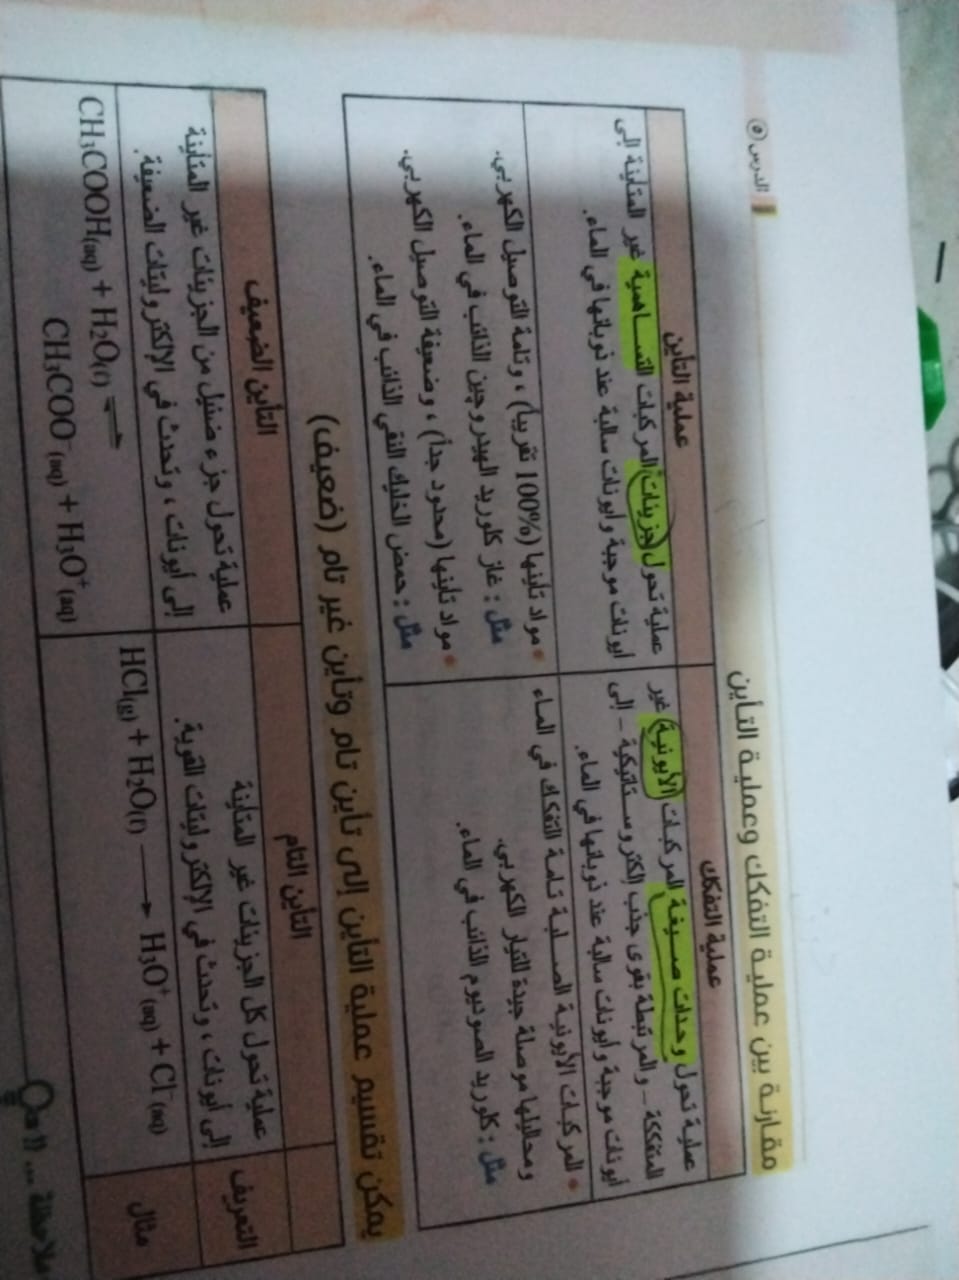 الدرس ٥
مقارنة بين عملية التفكك وعملية التأين
عملية التفكك
عملية تحول وحدات صيغة المركبات الأيونية غير
المتفككة - والمرتبطة بقوى جذب إلكتروستاتيكية - إلى
أيونات موجبة وأيونات سالبة عند ذوبانها في الماء.
• المركبات الأيونية الصلبة تامة التفكك في الماء
ومحاليلها موصلة جيدة للتيار الكهربي.
مثل : كلوريد الصوديوم الذائب في الماء.
عملية التأين
عملية تحول جزيئات المركبات التساهمية غير المتأينة إلى
أيونات موجبة وأيونات سالبة عند ذوبانها في الماء.
• مواد تأينها (100% تقريباً) ، وتامة التوصيل الكهربي.
مثل : غاز كلوريد الهيدروجين الذائب في الماء.
• مواد تأينها (محدود جداً) ، وضعيفة التوصيل الكهربي.
مثل : حمض الخليك النقي الذائب في الماء.
يمكن تقسيم عملية التأين إلى تأين تام وتأين غير تام (ضعيف)
التأين التام
التأين الضعيف
التعريف
عملية تحول كل الجزيئات غير المتأينة
إلى أيونات ، وتحدث في الإلكتروليتات القوية.
عملية تحول جزء ضئيل من الجزيئات غير المتأينة
إلى أيونات ، وتحدث في الإلكتروليتات الضعيفة.
مثال
HCl(g) + H₂O(l) ⟶ H₃O⁺(aq) + Cl⁻(aq)
CH₃COOH(aq) + H₂O(l) ⇌
CH₃COO⁻(aq) + H₃O⁺(aq)
ملاحظة ...